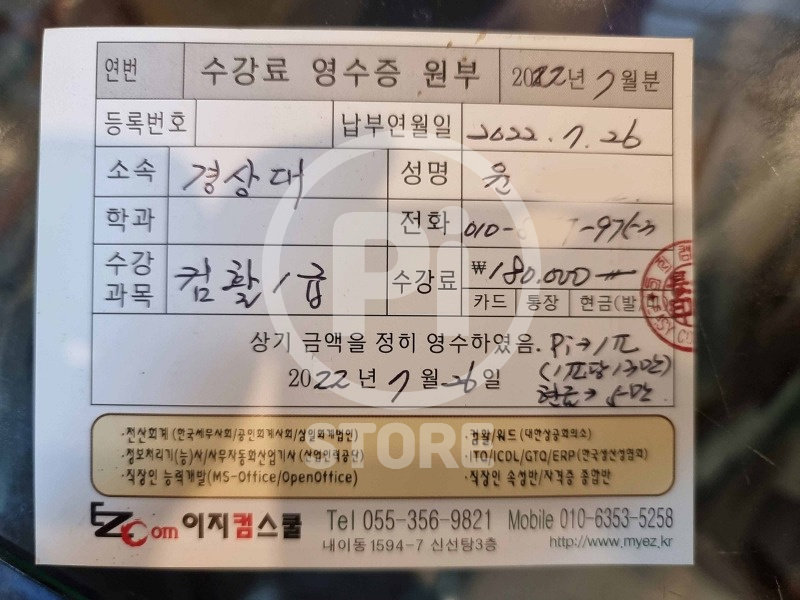 연번 수강료 영수증 원부 2022년 7월분
등록번호 납부연월일 2022. 7. 26
소속 경상대 성명 윤
학과 전화 010-
수강과목 컴활 1급 수강료 ₩180.000
카드 통장 현금(발)
상기 금액을 정히 영수하였음. Pi → 1π
2022년 7월 26일 (1π당 13만)
현금 → 5만
Pi
STORE
·전산회계(한국세무사회/공인회계사회/삼일회계법인) ·컴활/워드(대한상공회의소)
·정보처리기(능)사/사무자동화산업기사(산업인력공단) ·ITQ/ICDL/GTQ/ERP(한국생산성협회)
·직장인 능력개발(MS-Office/OpenOffice) ·직장인 속성반/자격증 종합반
EZcom 이지컴스쿨 Tel 055-356-9821 Mobile 010-6353-5258
내이동 1594-7 신선탕3층 http://www.myez.kr